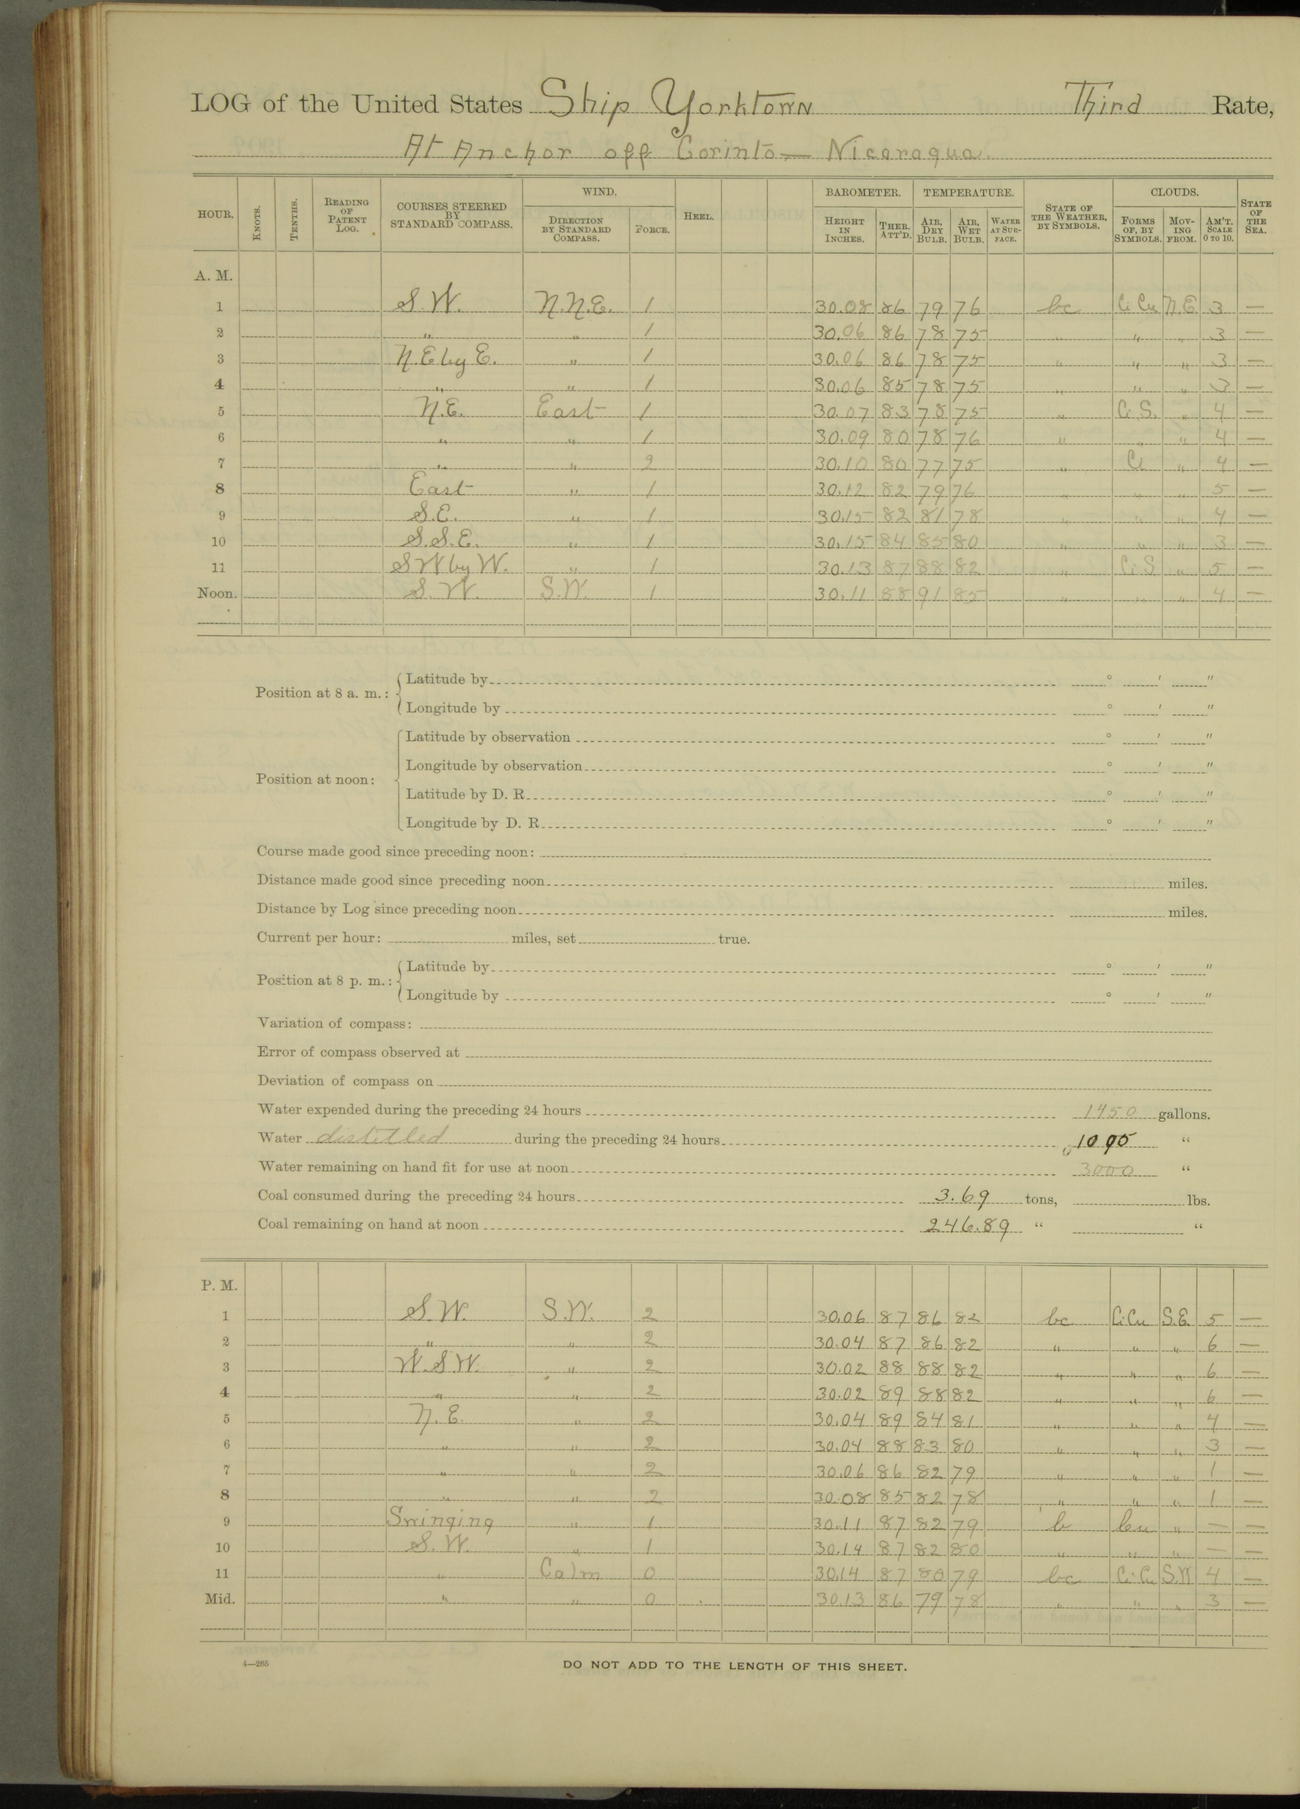 LOG of the United States Ship Yorktown Third Rate,
At Anchor off Corinto — Nicaragua.
HOUR. KNOTS. TENTHS. READING OF PATENT LOG. COURSES STEERED BY STANDARD COMPASS. WIND. DIRECTION BY STANDARD COMPASS. FORCE. HEEL. BAROMETER. HEIGHT IN INCHES. THER. ATT'D. TEMPERATURE. AIR, DRY BULB. AIR, WET BULB. WATER AT SURFACE. STATE OF THE WEATHER, BY SYMBOLS. CLOUDS. FORMS OF, BY SYMBOLS. MOVING FROM. AM'T. SCALE 0 TO 10. STATE OF THE SEA.
A. M.
1 S.W. N.N.E. 1 30.08 86 79 76 bc Ci Cu N.E. 3 —
2 " " 1 30.06 86 78 75 " " " 3 —
3 N.E by E. " 1 30.06 86 78 75 " " " 3 —
4 " " 1 30.06 85 78 75 " " " 3 —
5 N.E. East 1 30.07 83 78 75 " Ci S. " 4 —
6 " " 1 30.09 80 78 76 " " " 4 —
7 " " 2 30.10 80 77 75 " Ci " 4 —
8 East " 1 30.12 82 79 76 " " " 5 —
9 S.E. " 1 30.15 82 81 78 " " " 4 —
10 S.S.E. " 1 30.15 84 85 80 " " " 3 —
11 SW by W. " 1 30.13 87 88 82 " Ci S " 5 —
Noon. S.W. S.W. 1 30.11 88 91 85 " " " 4 —
Position at 8 a. m.: Latitude by ° ' "
Longitude by ° ' "
Position at noon: Latitude by observation ° ' "
Longitude by observation ° ' "
Latitude by D. R. ° ' "
Longitude by D. R. ° ' "
Course made good since preceding noon:
Distance made good since preceding noon miles.
Distance by Log since preceding noon miles.
Current per hour: miles, set true.
Position at 8 p. m.: Latitude by ° ' "
Longitude by ° ' "
Variation of compass:
Error of compass observed at
Deviation of compass on
Water expended during the preceding 24 hours 1450 gallons.
Water distilled during the preceding 24 hours 1095 "
Water remaining on hand fit for use at noon 3000 "
Coal consumed during the preceding 24 hours 3.69 tons, lbs.
Coal remaining on hand at noon 246.89 " "
P. M.
1 S.W. S.W. 2 30.06 87 86 82 bc Ci Cu S.E. 5 —
2 " " 2 30.04 87 86 82 " " " 6 —
3 W.S.W. " 2 30.02 88 88 82 " " " 6 —
4 " " 2 30.02 89 88 82 " " " 6 —
5 N.E. " 2 30.04 89 84 81 " " " 4 —
6 " " 2 30.04 88 83 80 " " " 3 —
7 " " 2 30.06 86 82 79 " " " 1 —
8 " " 2 30.08 85 82 78 " " " 1 —
9 Swinging " 1 30.11 87 82 79 b Cu " — —
10 S.W. " 1 30.14 87 82 80 " " " — —
11 " Calm 0 30.14 87 80 79 bc Ci Cu S.W 4 —
Mid. " " 0 30.13 86 79 78 " " " 3 —
4—265
DO NOT ADD TO THE LENGTH OF THIS SHEET.